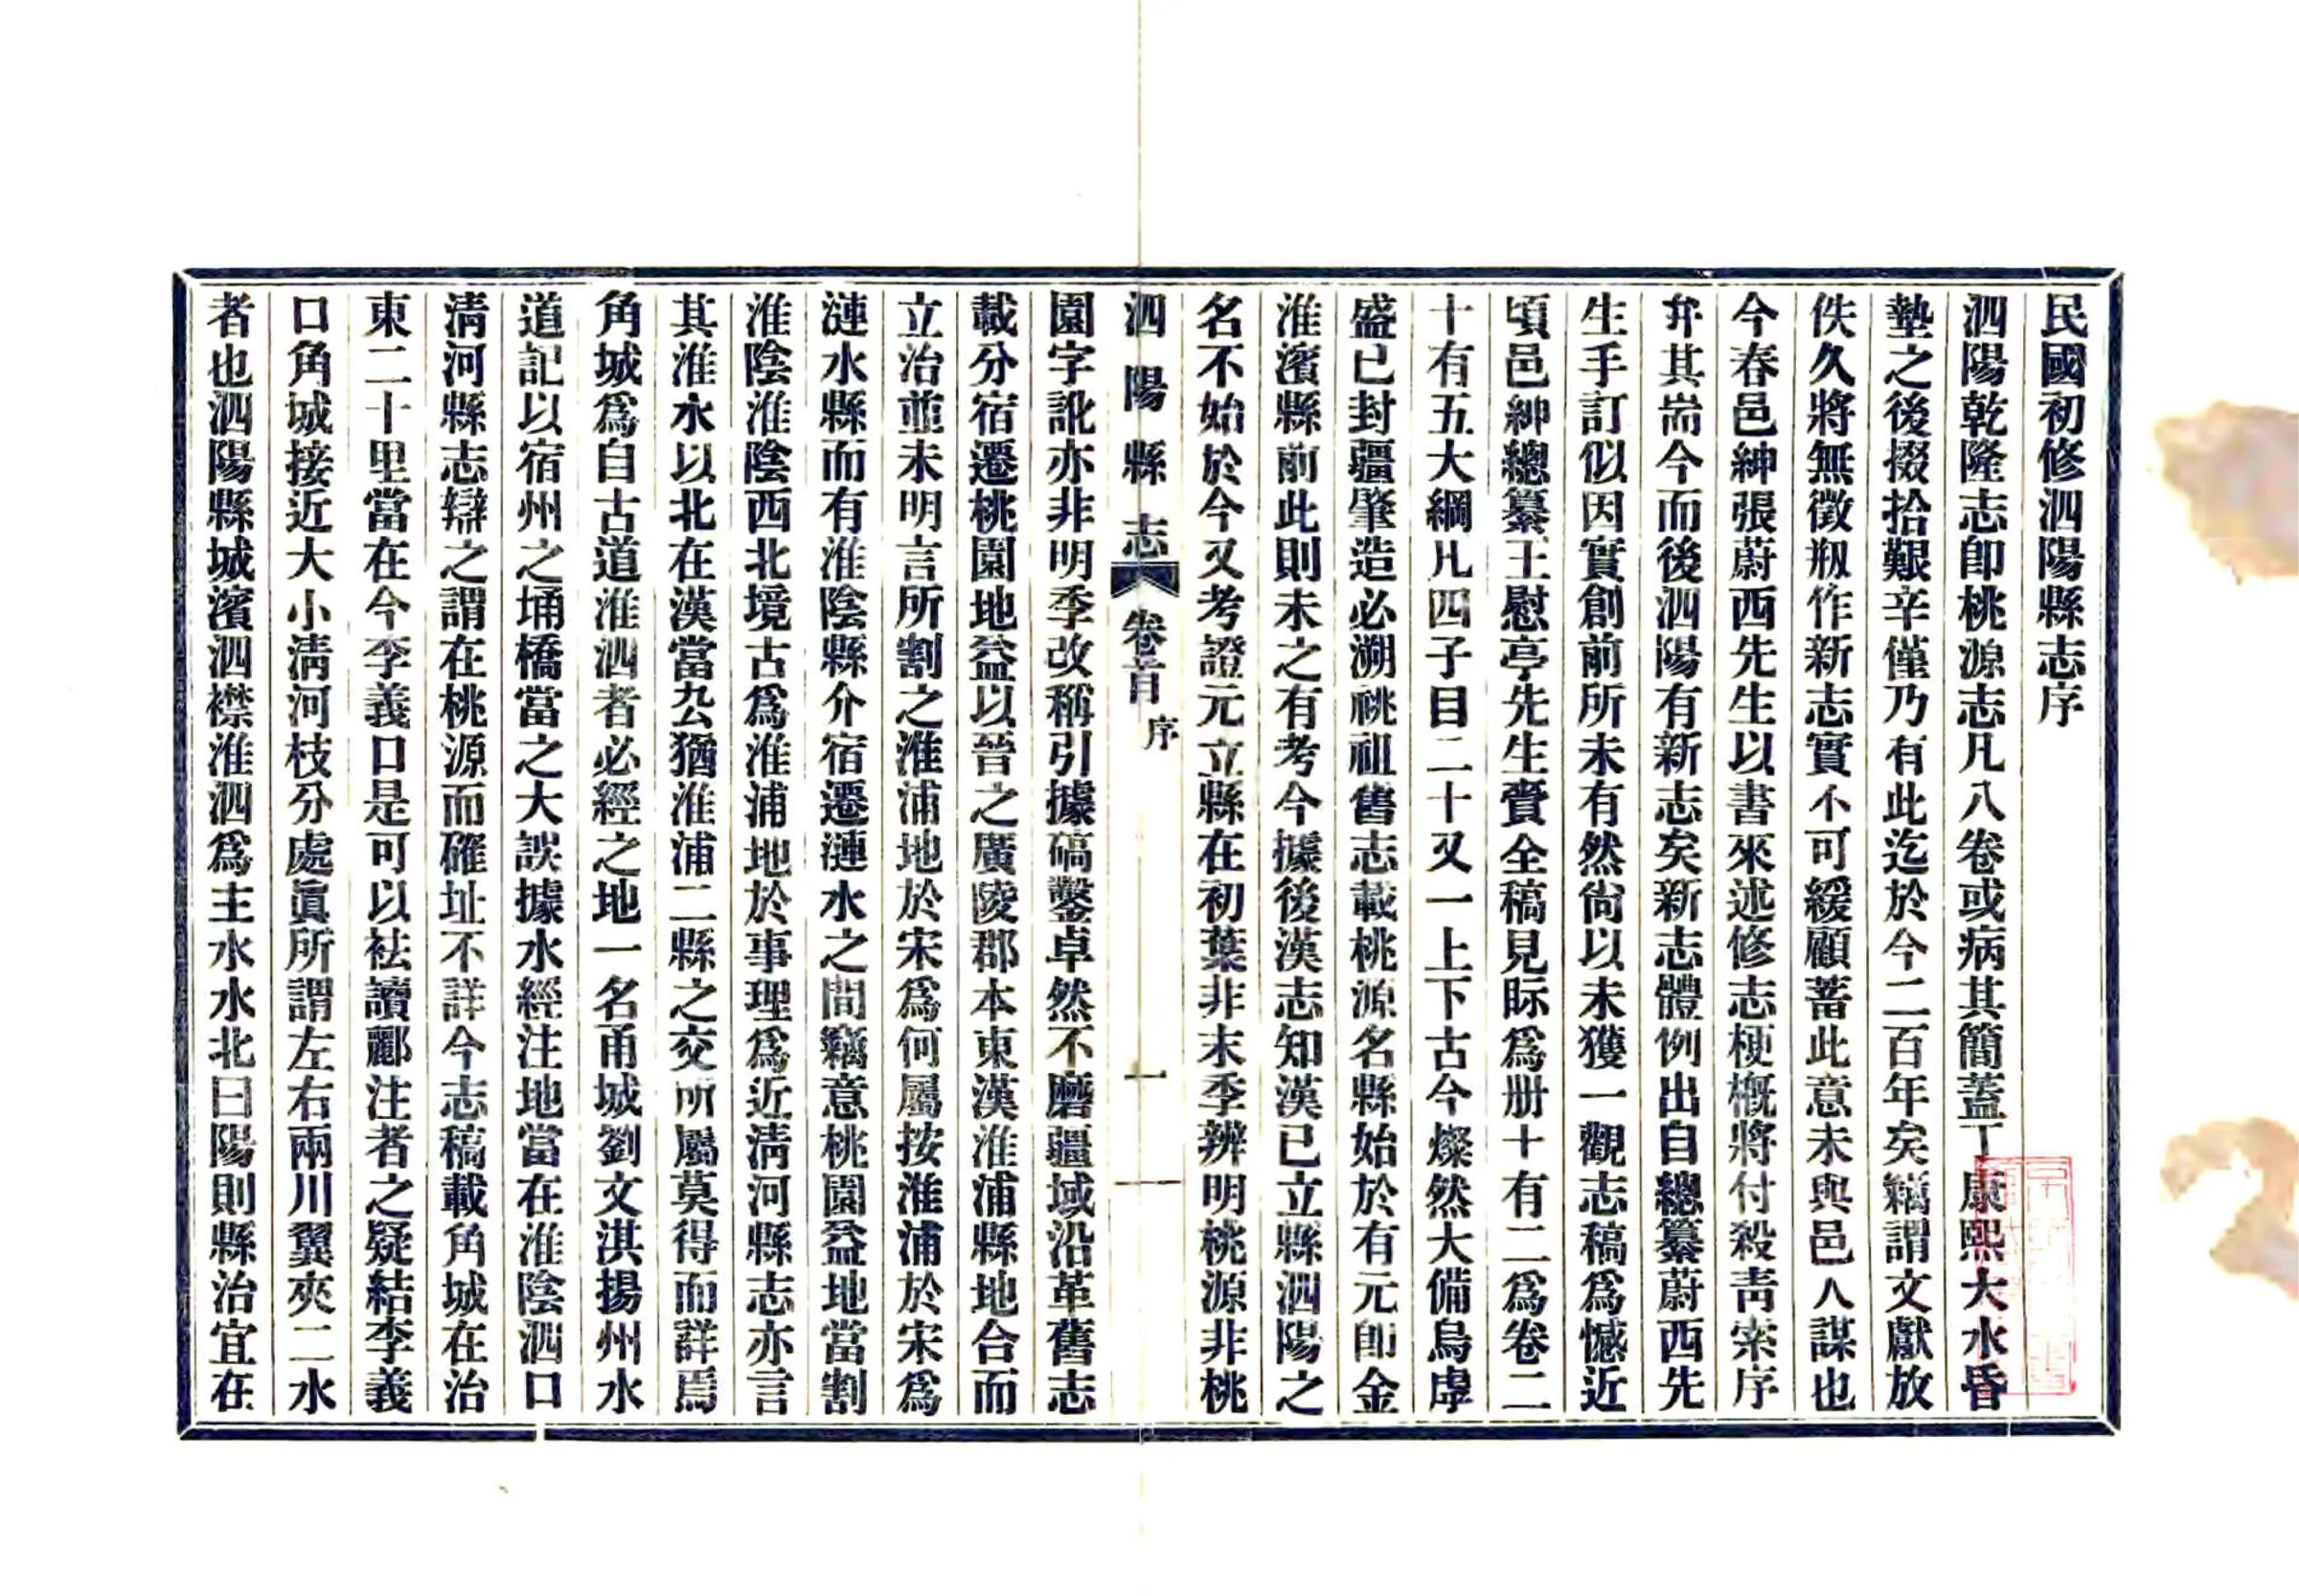 民國初修泗陽縣志序
泗陽乾隆志卽桃源志凡八卷或病其簡蓋丁康熙大水昏
墊之後掇拾艱辛僅乃有此迄於今二百年矣竊謂文獻放
佚久將無徵剏作新志實不可緩顧蓄此意未與邑人謀也
今春邑紳張蔚西先生以書來述修志梗槪將付殺靑索序
弁其耑今而後泗陽有新志矣新志體例出自總纂蔚西先
生手訂似因實創前所未有然尙以未獲一觀志稿爲憾近
頃邑紳總纂王慰亭先生賷全稿見眎爲册十有二爲卷二
十有五大綱凡四子目二十又一上下古今燦然大備烏虖
盛已封疆肇造必溯祧祖舊志載桃源名縣始於有元卽金
淮濱縣前此則未之有考今據後漢志知漢已立縣泗陽之
名不始於今又考證元立縣在初葉非末季辨明桃源非桃
泗陽縣志 卷首 序 一
園字訛亦非明季改稱引據碻鑿卓然不磨疆域沿革舊志
載分宿遷桃園地益以晉之廣陵郡本東漢淮浦縣地合而
立治並未明言所割之淮浦地於宋爲何屬按淮浦於宋爲
漣水縣而有淮陰縣介宿遷漣水之間竊意桃園益地當割
淮陰淮陰西北境古爲淮浦地於事理爲近淸河縣志亦言
其淮水以北在漢當厹猶淮浦二縣之交所屬莫得而詳焉
角城爲自古道淮泗者必經之地一名甬城劉文淇揚州水
道記以宿州之埇橋當之大誤據水經注地當在淮陰泗口
淸河縣志辯之謂在桃源而確址不詳今志稿載角城在治
東二十里當在今李義口是可以袪讀酈注者之疑結李義
口角城接近大小淸河枝分處眞所謂左右兩川翼夾二水
者也泗陽縣城濱泗襟淮泗爲主水水北曰陽則縣治宜在